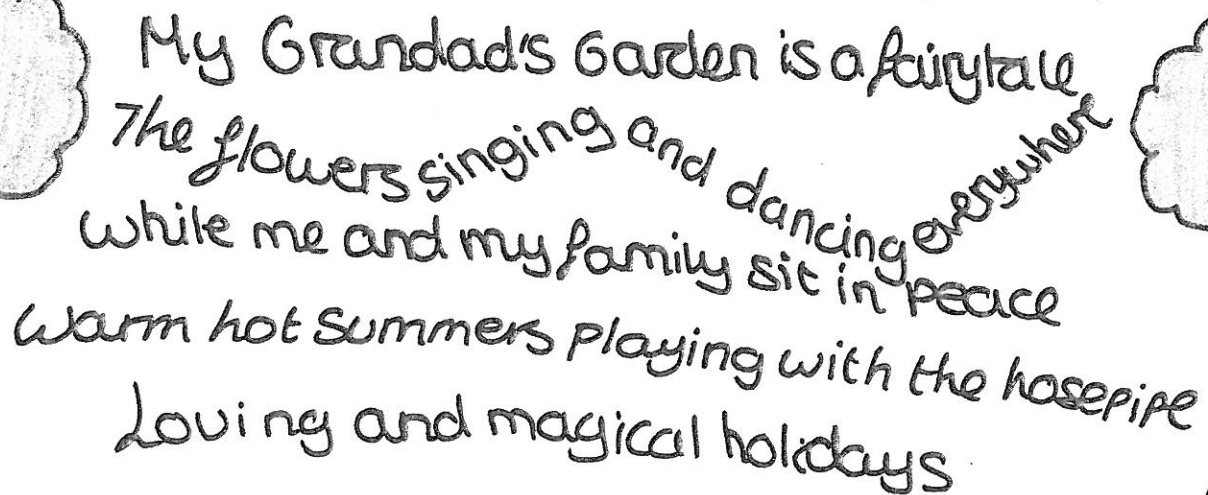 My Grandad's Garden is a fairytale
The flowers singing and dancing everywhere
while me and my family sit in peace
Warm hot summers playing with the hosepipe
Loving and magical holidays